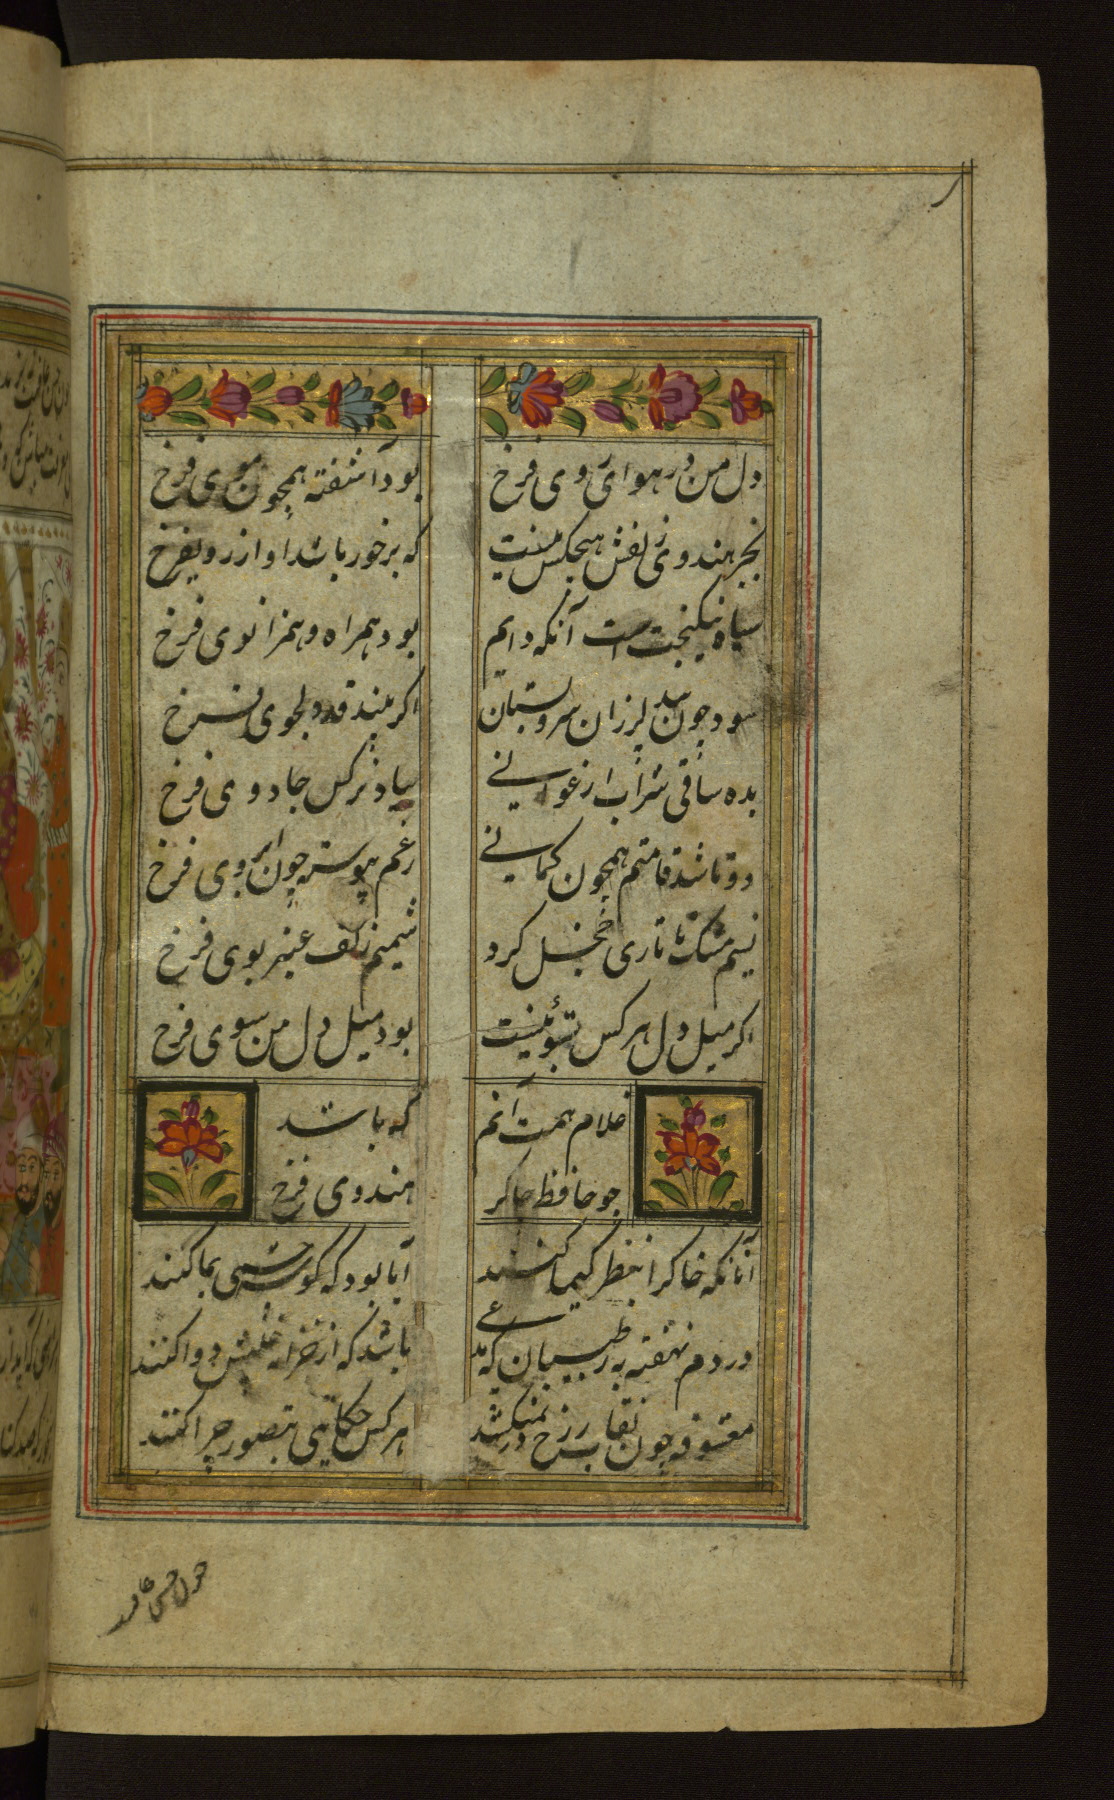 دل من در هوای روی فرخ
بود آشفته همچون موی فرخ
بجز هندوی زلفش هیچکس نیست
که برخوردار باشد او از روی فرخ
سیاه نیکبخت است آنکه دایم
بود همراه و همزانوی فرخ
شود چون بید لرزان سرو بستان
اگر بیند قد دلجوی فرخ
بده ساقی شراب ارغوانی
بیاد نرگس جادوی فرخ
دوتا شد قامتم همچون کمانی
زغم پیوسته چون ابروی فرخ
نسیم مشک تاتاری خجل کرد
شمیم زلف عنبر بوی فرخ
اگر میل دل هرکس بسوئیست
بود میل دل من سوی فرخ
غلام همت آنم
که باشد
چو حافظ چاکر
هندوی فرخ
آنانکه خاکرا بنظر کیمیا کنند
آیا بود که گوشه چشمی بما کنند
دردم نهفته به زطبیبان مدعی
باشد که از خزانه غیبش دوا کنند
معشوقه چون نقاب زرخ در نمیکشد
هر کس حکایتی بتصور چرا کنند
چون حسن عاقبت